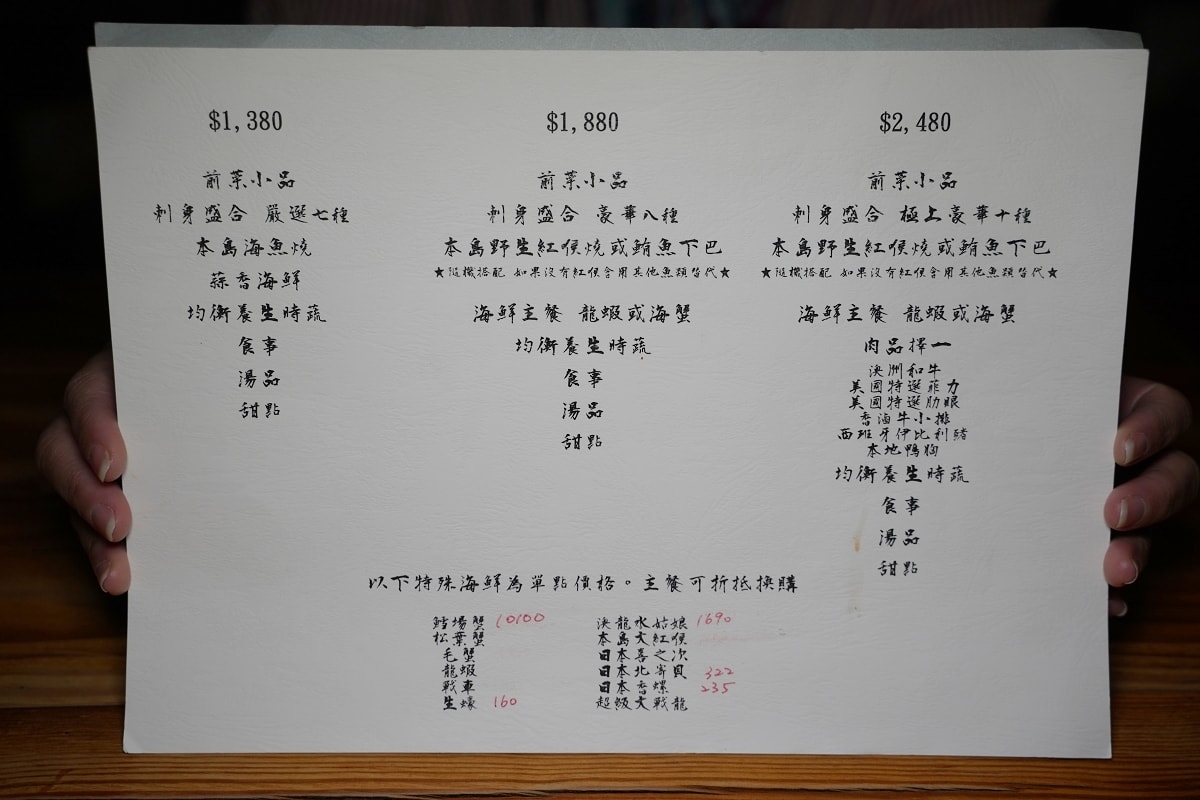 $1,380
前菜小品
刺身盛合 嚴選七種
本島海魚燒
蒜香海鮮
均衡養生時蔬
食事
湯品
甜點
$1,880
前菜小品
刺身盛合 豪華八種
本島野生紅喉燒或鮪魚下巴
★隨機搭配 如果沒有紅喉會用其他魚頭替代★
海鮮主餐 龍蝦或海蟹
均衡養生時蔬
食事
湯品
甜點
$2,480
前菜小品
刺身盛合 極上豪華十種
本島野生紅喉燒或鮪魚下巴
★隨機搭配 如果沒有紅喉會用其他魚頭替代★
海鮮主餐 龍蝦或海蟹
肉品擇一
澳洲和牛
美國特選菲力
美國特選肋眼
香滷牛小排
西班牙伊比利豬
本地鴨胸
均衡養生時蔬
食事
湯品
甜點
以下特殊海鮮為單點價格。主餐可折抵換購
鱈場蟹 10100
松葉蟹
毛蟹
龍蝦
戰車
生蠔 160
澳龍水姑娘 1690
本島大紅喉
日本喜之次
日本北寄貝 322
日本香螺 235
超級大戰龍